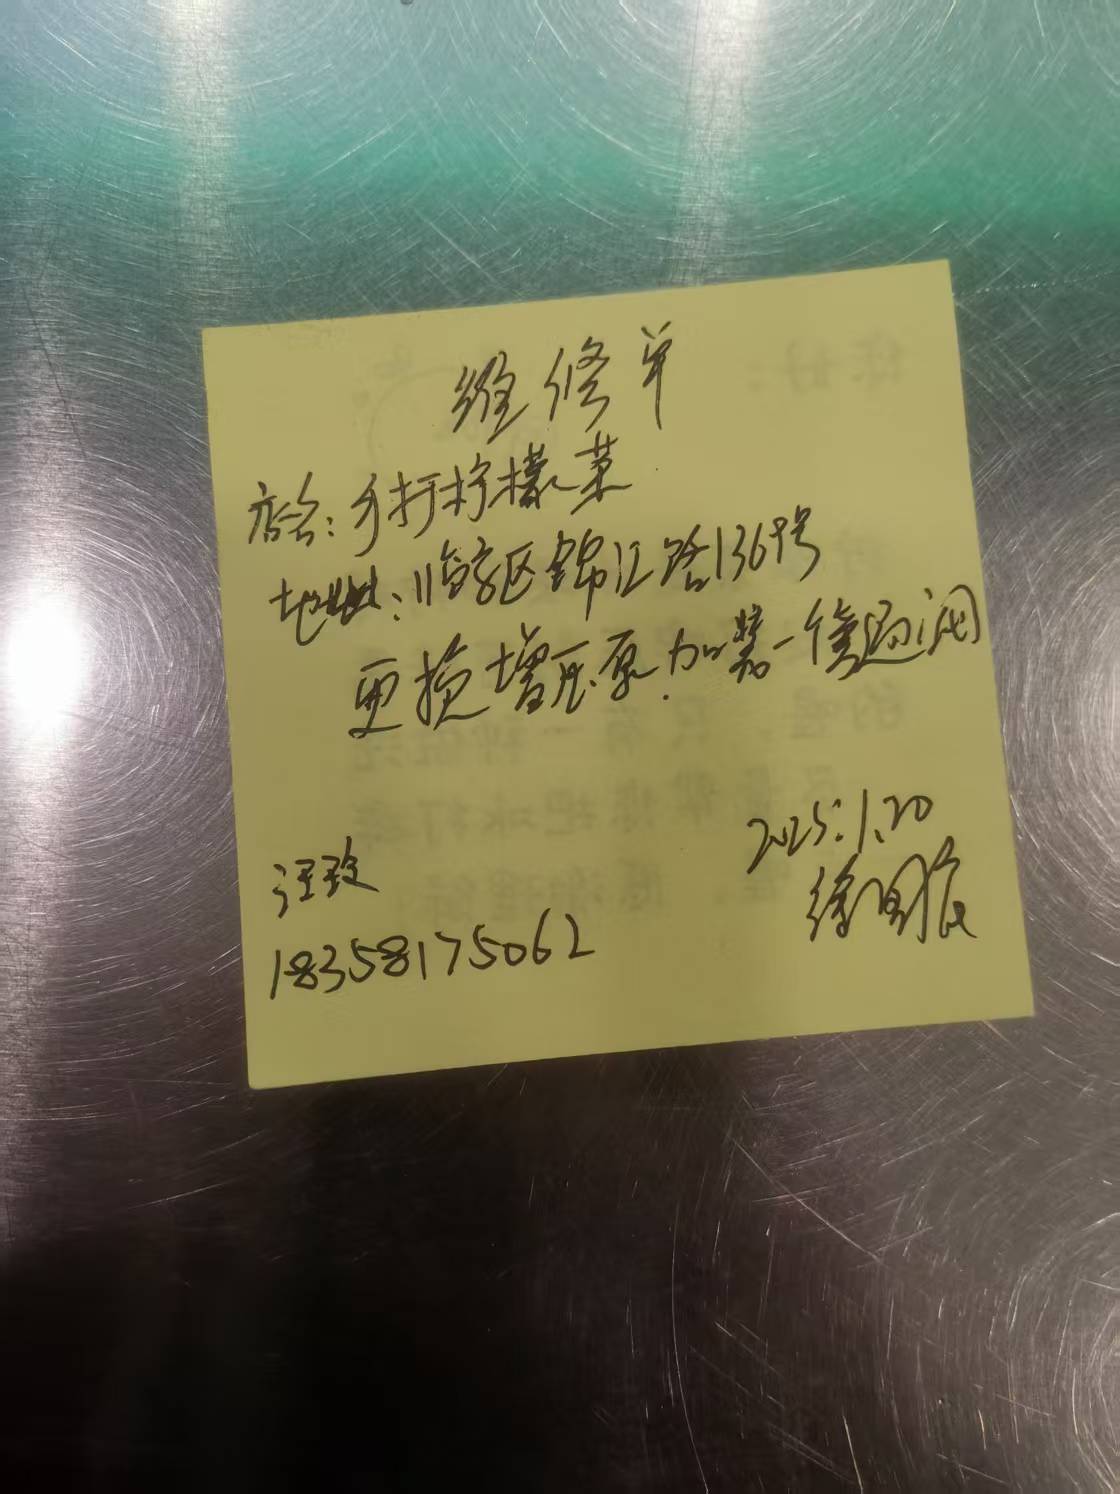 维修单
店名:手打柠檬茶
地址:临安区锦江路1369号
更换增压泵.加装一套
汪玫
18358175062
2025.1.20
徐国